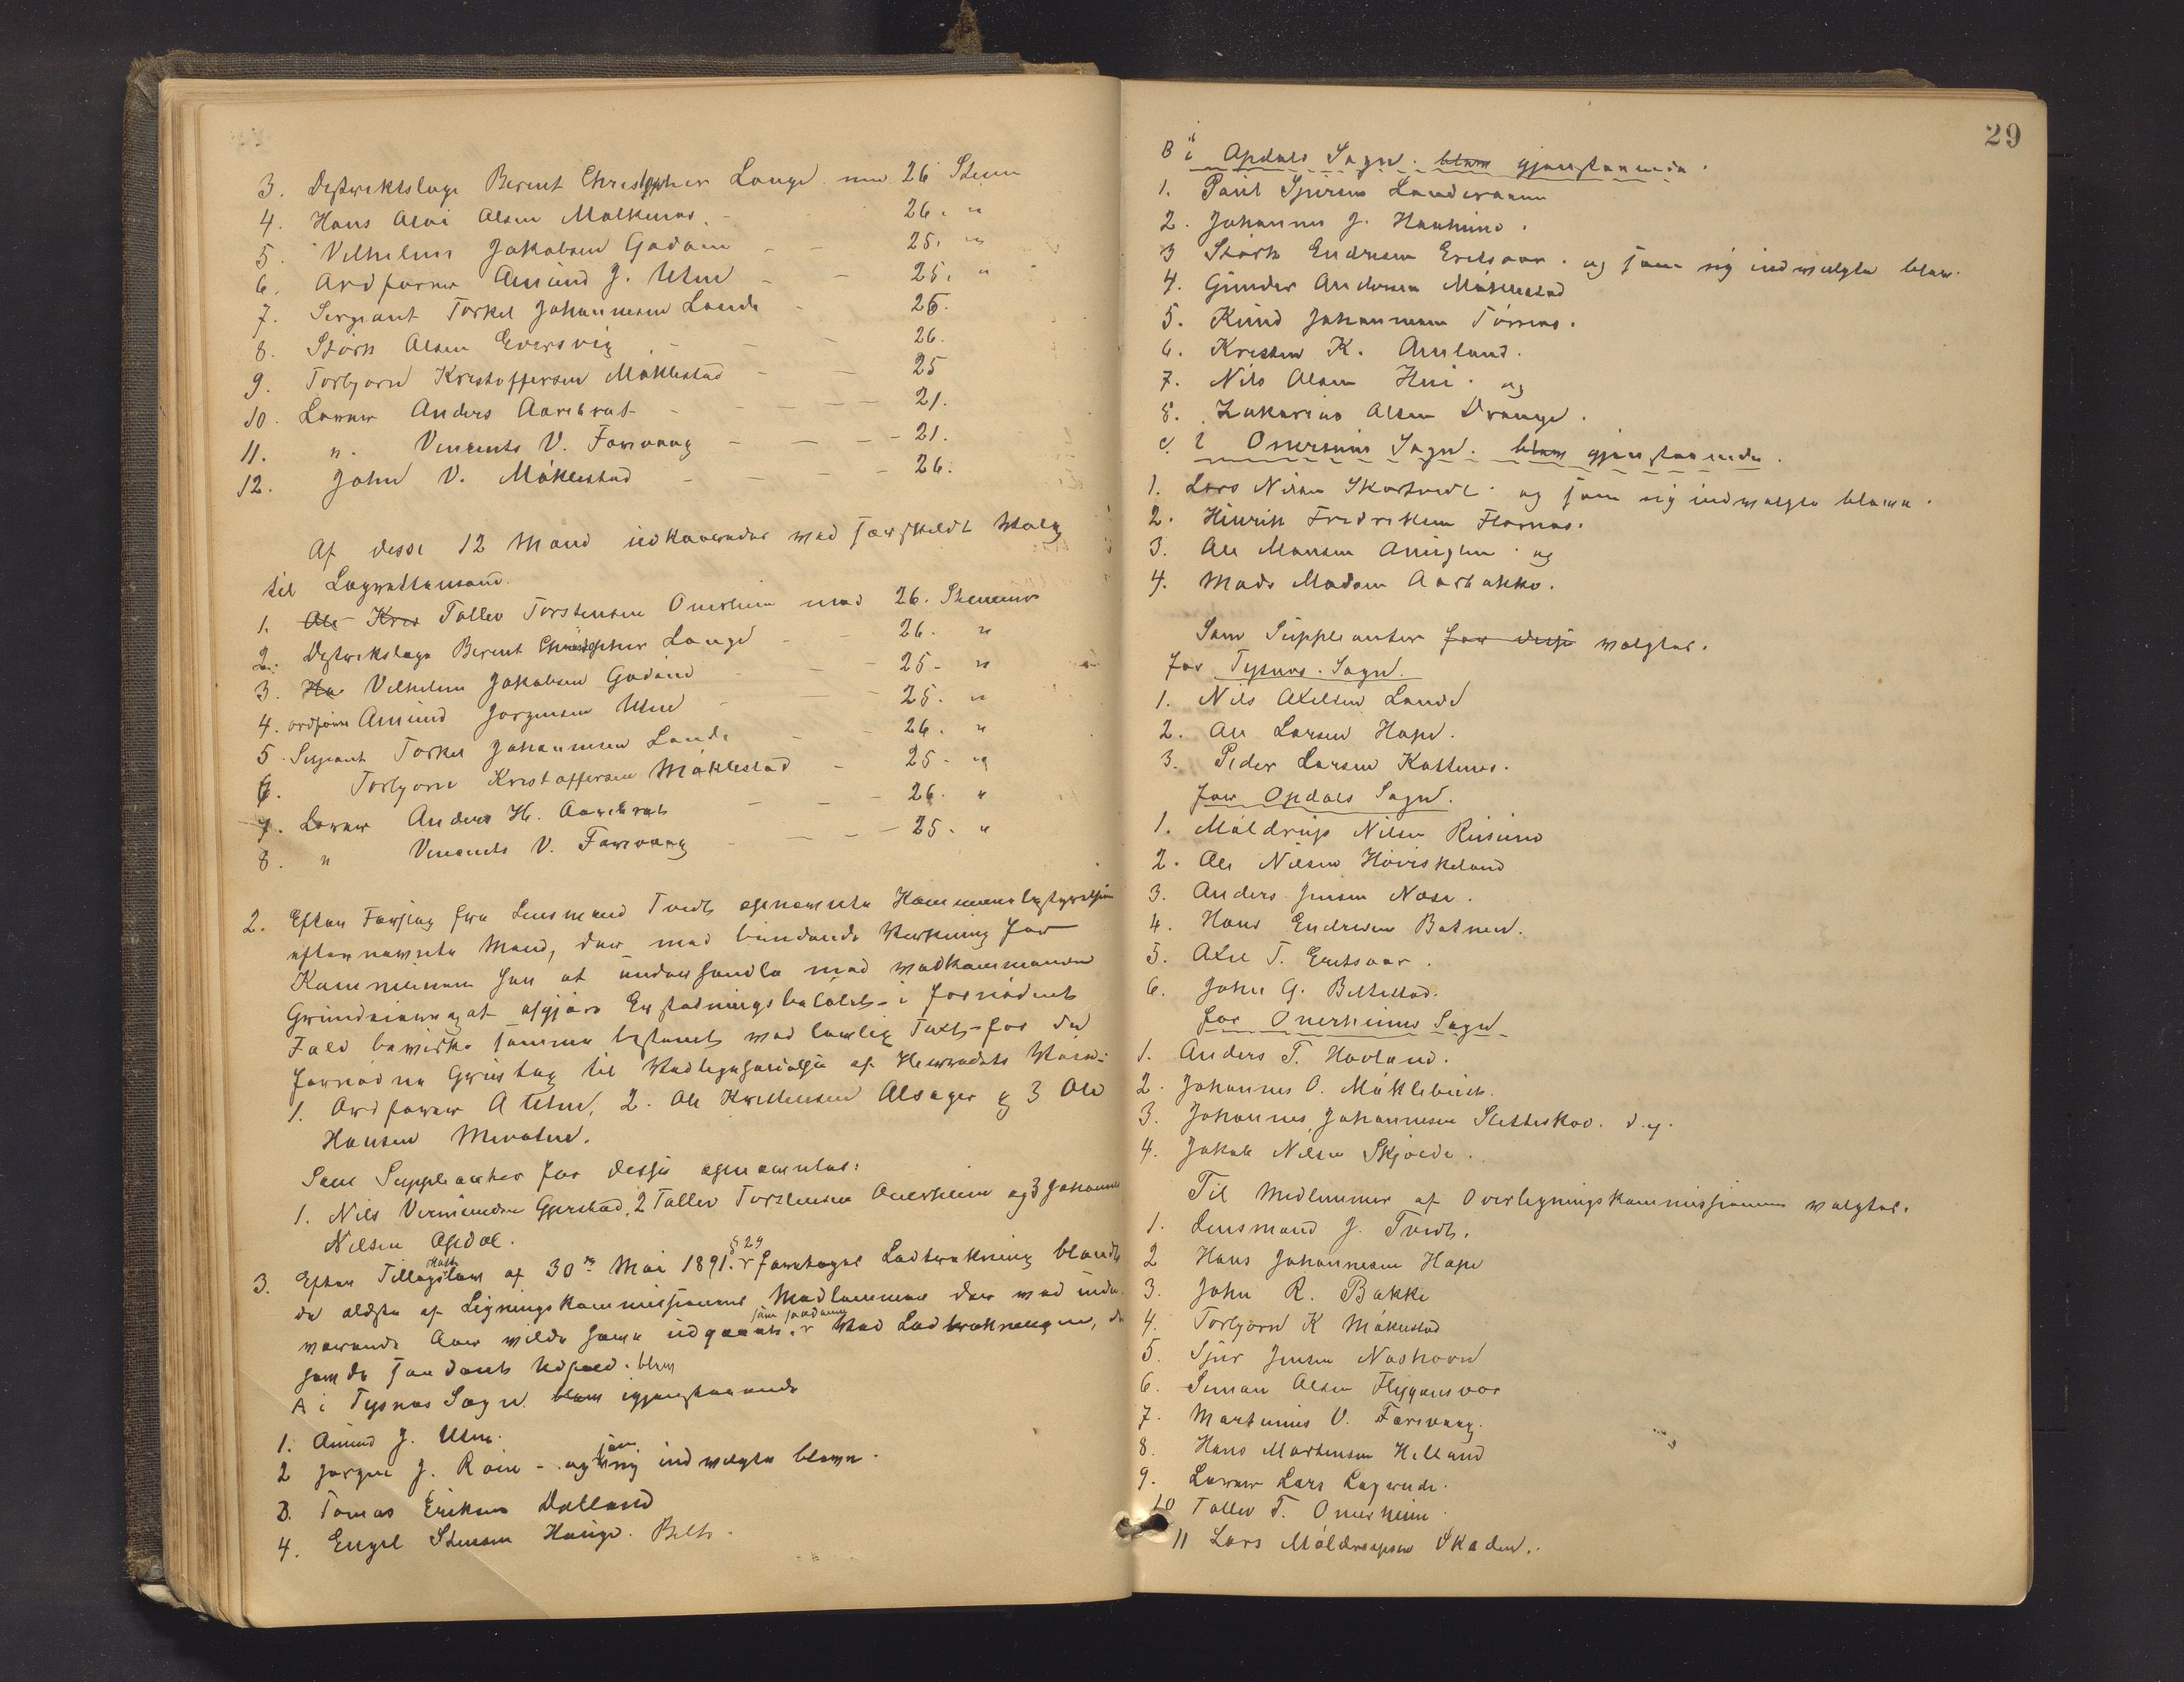 3. Distriktslæge Berent Christopher Lange med 26 Stem
4. Hans Alai Olsen Malkenes - 26. "
5. Vilhelm Jakobsen Godøin - - 25. "
6. Ordfører Amund J. Uhn - - 25. "
7. Sergiant Torkel Johannesen Lande - 26.
8. Størk Olsen Eversvig - - - 26.
9. Torbjørn Kristoffersen Møklestad - - 25
10. Lærer Anders Aarebrot - - - - 21.
11. " Vincents V. Farevaag - - - - 21.
12. John V. Møklestad - - - 26.
Af disse 12 Mænd udkaaredes ved særskildt Valg
til Lagrettemænd.
1. Ole Kris Tollev Torstensen Onerheim med 26. Stemmer
2. Distrikslæge Berent Christopher Lange - - 26. "
3. Ha Vilhelm Jakobsen Godøin - - 25. "
4. ordfører Amund Jørgensen Uhn - - 25. "
5. Sergeant Torkel Johannesen Lande - - 26. "
6. Torbjørn Kristoffersen Møklestad - 25. "
7. Lærer Anders H. Aarebrot - - - 26. "
8. " Vincents V. Farevaag - - - - 25. "
2. Efter Forslag fra Lensmand Tvedt opnævnte Kommunebestyrelsen
efternævnte Mænd, der med bindende Virkning for
Kommunen han at underhandle med vedkommende
Grundeiere og at afgjøre Erstatningsbeløbet i fornødent
Fald bevirke samme bestemt ved lovlig Taxt for den
fornødne Grustag til Vedligeholdelse af Herredets Veie:
1. Ordfører A Uhn, 2. Ole Kristensen Alsager og 3 Ole
Hansen Mevatn.
Som Suppleanter for disse opnævntes:
1. Nils Vermundsen Gjerstad, 2 Tollev Torstensen Onerheim og 3 Johannes
Nilsen Opdal.
3. Efter Tillægs Skattelov af 30te Mai 1891. § 29 foretoges Lodtrækning blandt
de ældste af Ligningskommissionens Medlemmer der ved inde-
værende Aar vilde have udgaaet. som saadanne Ved Lodtrækningen, der
havde saadant Udfald. blev
A i Tysnes Sogn blev igjenstaaende
1. Amund J. Uhn.
2 Jørgen J. Røin - og som ny indvalgte bleve.
3. Tomas Eriksen Dalland
4. Engel Stensen Hauge. Belt.
29
B i Opdals Sogn. blev gjenstaaende.
1. Paul Sjursen Landeraaen
2. Johannes J. Haaheim.
3 Størk Endresen Eretsaar. og som ny indvalgte blev.
4. Gunder Andersen Møklestad
5. Knud Johannesen Tørnes.
6. Kristen K. Amland.
7. Nils Olsen Hei. og
8. Zakarias Olsen Drange.
C. i Onerheims Sogn. blev gjenstaaende.
1. Lars Nilsen Skartvedt. og som ny indvalgte bleve.
2. Hinrik Fredriksen Flornes.
3. Ole Monsen Amigleen. og
4. Mads Madsen Aarbakke.
Som Suppleanter for disse valgtes.
for Tysnes. Sogn.
1. Nils Axelsen Lande
2. Ole Larsen Hope.
3. Peder Larsen Kattenes.
for Opdals Sogn.
1. Møldrup Nilsen Reisund
2. Ole Nilsen Hoviskeland
3. Anders Jensen Nese.
4. Hans Endresen Botnen.
5. Axel T. Eretsaar.
6. John G. Beltestad.
for Onerheims Sogn
1. Anders T. Hovland.
2. Johannes O. Møklebust.
3. Johannes Johannesen Sletteskov. d.y.
4. Jakob Nilsen Skjolde.
Til Medlemmer af Overligningskommissionen valgtes.
1. Lensmand J. Tvedt.
2 Hans Johannesen Hope
3. John R. Bakke
4. Torbjørn K Møklestad
5. Sjur Jensen Neshovd
6. Simon Olsen Flygansvær
7. Martinus V. Farevaag.
8. Hans Mortensen Helland
9. Lærer Lars Lagreide.
10 Tollev T. Onerheim
11 Lars Møldrupsen Skaden.